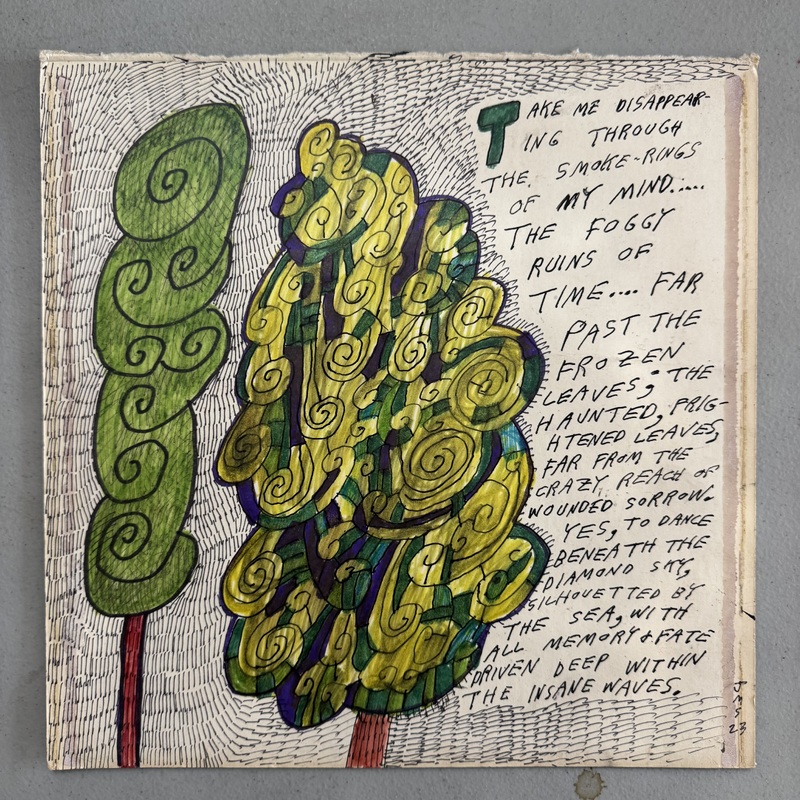 TAKE ME DISAPPEAR-
ING THROUGH
THE SMOKE-RINGS
OF MY MIND.....
THE FOGGY
RUINS OF
TIME.... FAR
PAST THE
FROZEN
LEAVES; THE
HAUNTED, FRIG-
HTENED LEAVES,
FAR FROM THE
CRAZY REACH OF
WOUNDED SORROW.
YES, TO DANCE
BENEATH THE
DIAMOND SKY,
SILHOUETTED BY
THE SEA, WITH
ALL MEMORY & FATE
DRIVEN DEEP WITHIN
THE INSANE WAVES.
JMS
23